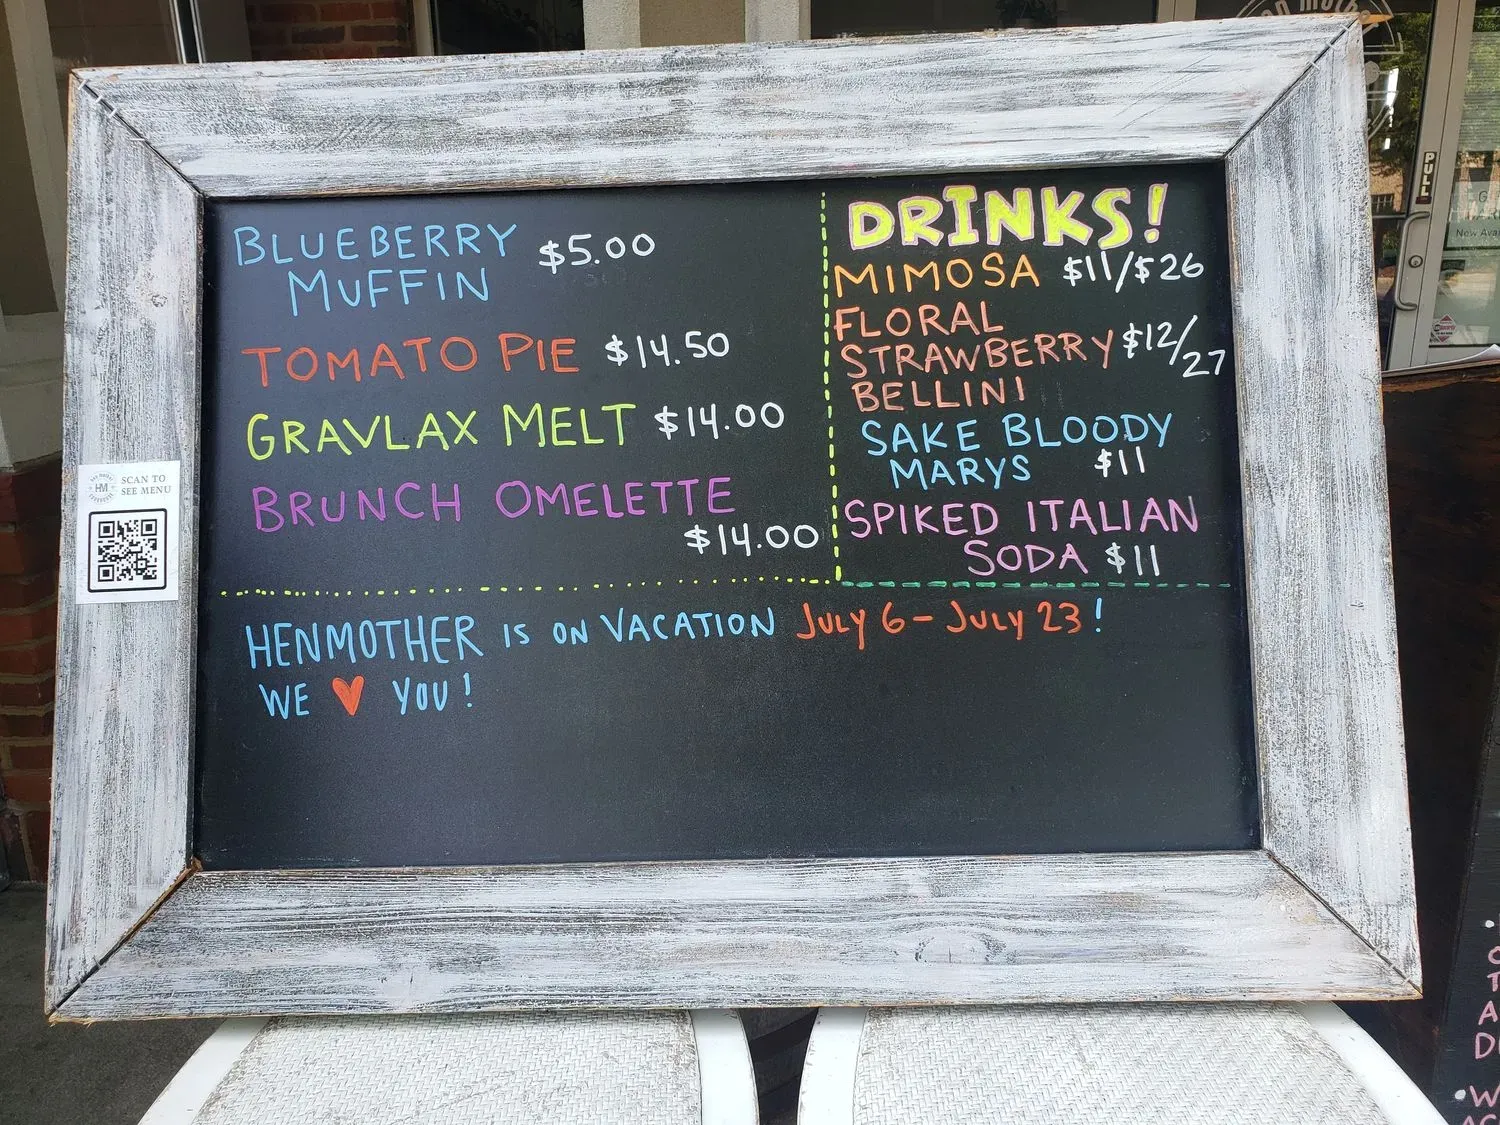 BLUEBERRY $5.00
MUFFIN
TOMATO PIE $14.50
GRAVLAX MELT $14.00
BRUNCH OMELETTE
$14.00
DRINKS!
MIMOSA $11/$26
FLORAL
STRAWBERRY $12/27
BELLINI
SAKE BLOODY
MARYS $11
SPIKED ITALIAN
SODA $11
HENMOTHER IS ON VACATION JULY 6 - JULY 23!
WE ♥ YOU!
HM
SCAN TO
SEE MENU
PULL
New